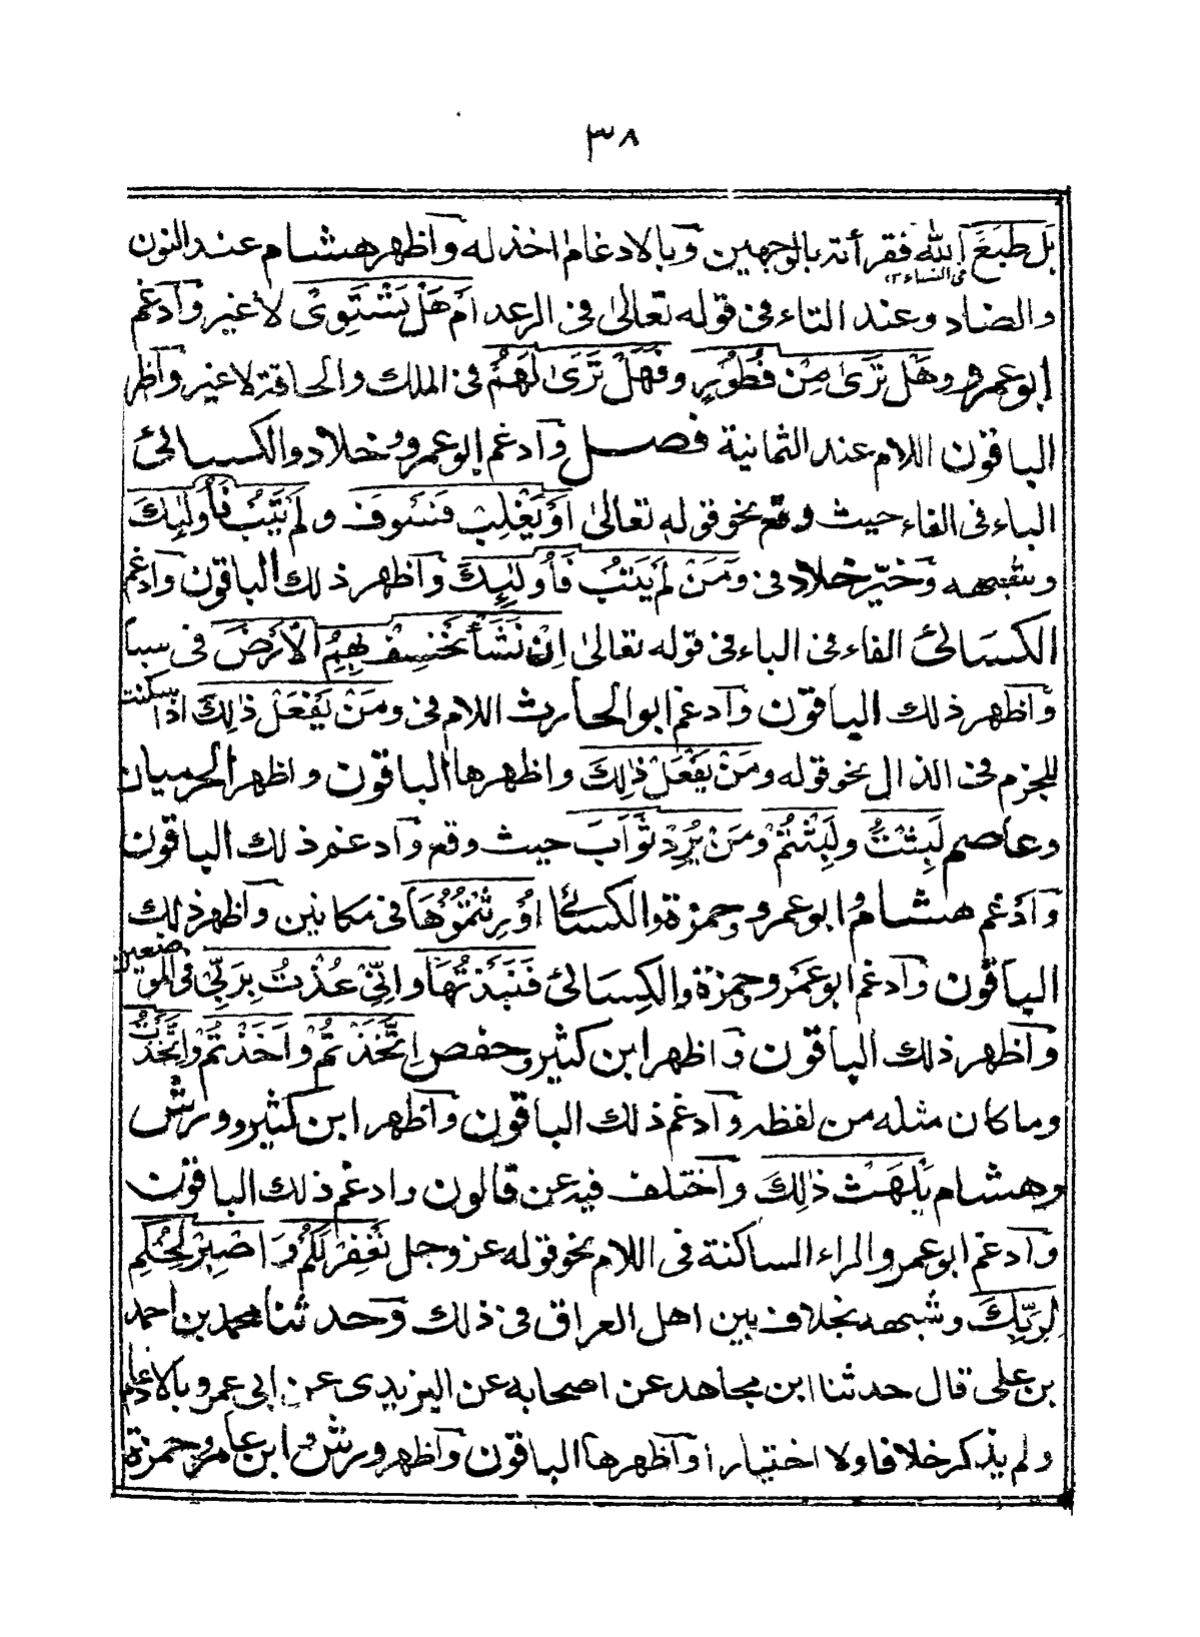 ٣٨
بَل طَبَعَ اَللّٰه فقرأته بالوجهين وَبالادغام اخذ له وَاظهر هشام عند النون
فى النساء ١٢
والضاد وعند التاء فى قوله تعالىٰ فى الرعد اَمْ هَلْ تَسْتَوِىْ لا غير وَادغم
ابو عمرو وهَلْ تَرَىٰ مِنْ فُطُوْرٍ وفَهَلْ تَرَىٰ لَهُمْ فى الملك والحاقة لا غير وَاظهر
الباقون اللام عند الثمانية فصل وَادغم ابو عمرو وخلاد والكسائى
الباء فى الفاء حيث وقع نحو قوله تعالىٰ اَوْ يَغْلِبْ فَسَوْفَ ولَمْ يَتُبْ فَاُولٰئِكَ
وشبهه وَخيّر خلاد فى وَمَنْ لَمْ يَتُبْ فَاُولٰئِكَ وَاظهر ذلك الباقون وَادغم
الكسَائى الفاء فى الباء فى قوله تعالىٰ اِنْ نَشَأْ نَخْسِفْ بِهِمُ الْاَرْضَ فى سبأ
وَاظهر ذلك الباقون وَادغم ابو الحارث اللام فى ومَنْ يَفْعَلْ ذٰلِكَ اذا سكنت
للجزم فى الذال نحو قوله ومَنْ يَفْعَلْ ذٰلِكَ واظهرها الباقون واظهر الحرميان
وعاصم لَبِثْتُ ولَبِثْتُمْ ومَنْ يُرِدْ ثَوَابَ حيث وقع وَادغم ذلك الباقون
وَادْغم هشام وابو عمرو وحمزة والكسائى اُوْرِثْتُمُوْهَا فى مكانين وَاظهر ذلك
الباقون وَادغم ابو عمرو وحمزة والكِسَائى فَنَبَذْتُهَا وَاِنِّىْ عُذْتُ بِرَبِّىْ فى الموضعين
وَاظهر ذلك الباقون وَاظهر ابن كثير وحفص اِتَّخَذْتُمْ وَاَخَذْتُمْ وَاتَّخَذْتُ
وما كان مثله من لفظه وَادغم ذلك الباقون وَاظهر ابن كثير وورش
وهشام يَلْهَثْ ذٰلِكَ وَاختلف فيه عن قالون وادغم ذلك الباقون
وَادغم ابو عمرو الراء الساكنة فى اللام نحو قوله عز وجل نَغْفِرْ لَكُمْ وَاصْبِرْ لِحُكْمِ
لِرَبِّكَ وشُبهه بخلاف بين اهل العراق فى ذلك وَحدثنا محمد بن احمد
بن على قال حدثنا ابن مجاهد عن اصحابه عن اليزيدى عن ابى عمرو بالادغام
ولم يذكر خلافا ولا اختيارا وَاظهرها الباقون وَاظهر ورش وابن عامر وحمزة